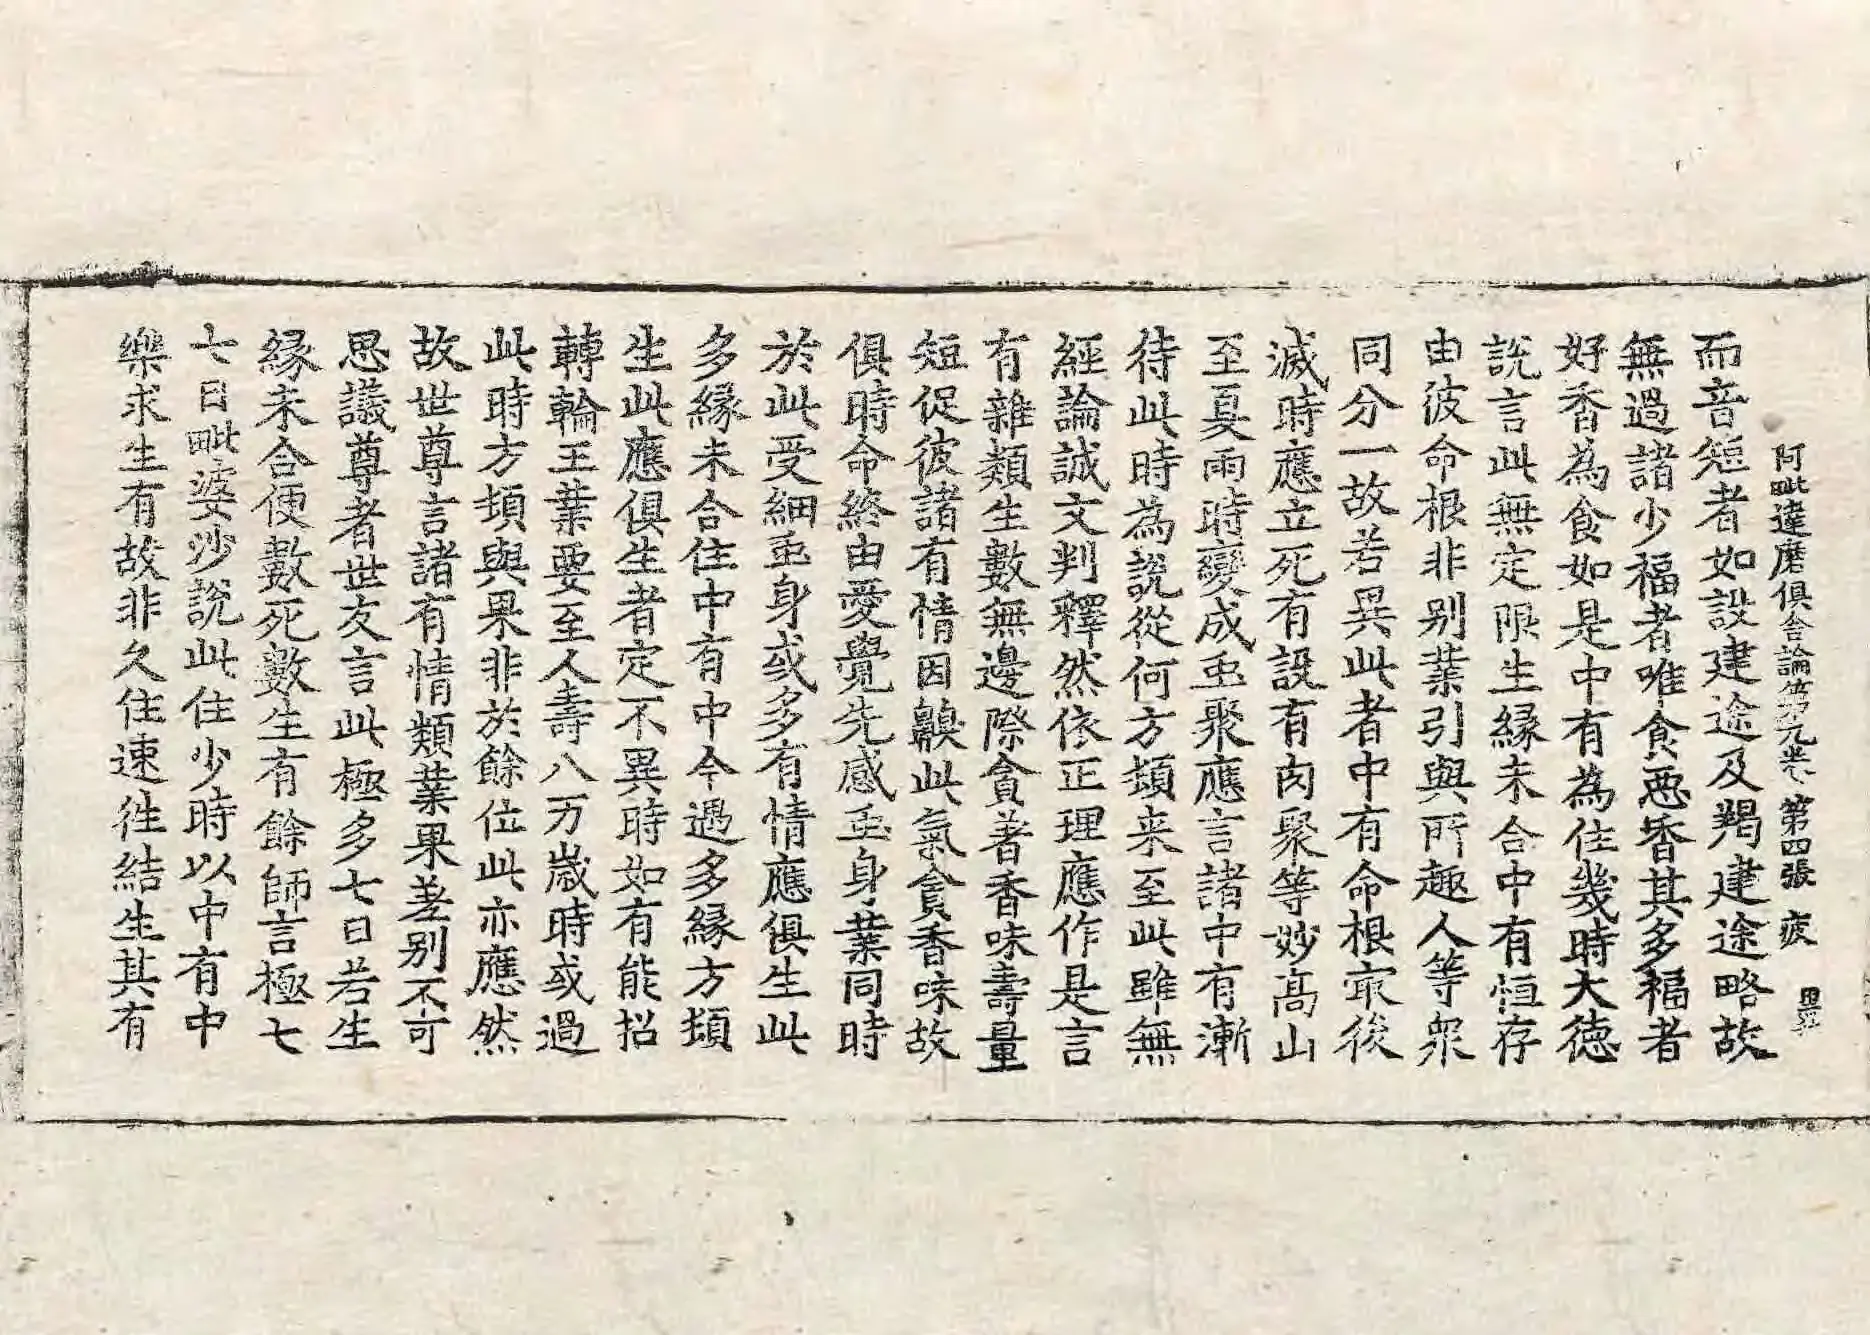 阿毗達磨俱舍論第九卷 第四張 疲
而音短者如設建途及羯建途略故
無過諸少福者唯食惡香其多福者
好香為食如是中有為住幾時大德
說言此無定限生緣未合中有恒存
由彼命根非別業引與所趣人等衆
同分一故若異此者中有命根㝡後
滅時應立死有設有肉聚等妙高山
至夏雨時變成虫聚應言諸中有漸
待此時為說從何方頪來至此雖無
經論誠文判釋然依正理應作是言
有雜類生數無邊際貪著香味壽量
短促彼諸有情因齅此氣貪香味故
俱時命終由愛覺先感虫身業同時
於此受細虫身或多多有情應俱生此
多緣未合住中有中今遇多緣方頪
生此應俱生者定不異時如有能招
轉輪王業要至人壽八万歲時或過
此時方頪與果非於餘位此亦應然
故世尊言諸有情類業果差别不可
思議尊者世友言此極多七日若生
緣未合便數死數生有餘師言極七
七日毗婆沙說此住少時以中有中
樂求生有故非久住速徃結生其有